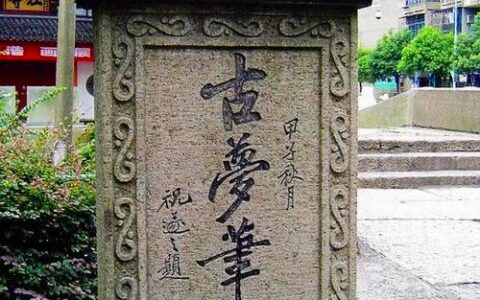 甲子秋月
古夢筆
祝遂之題